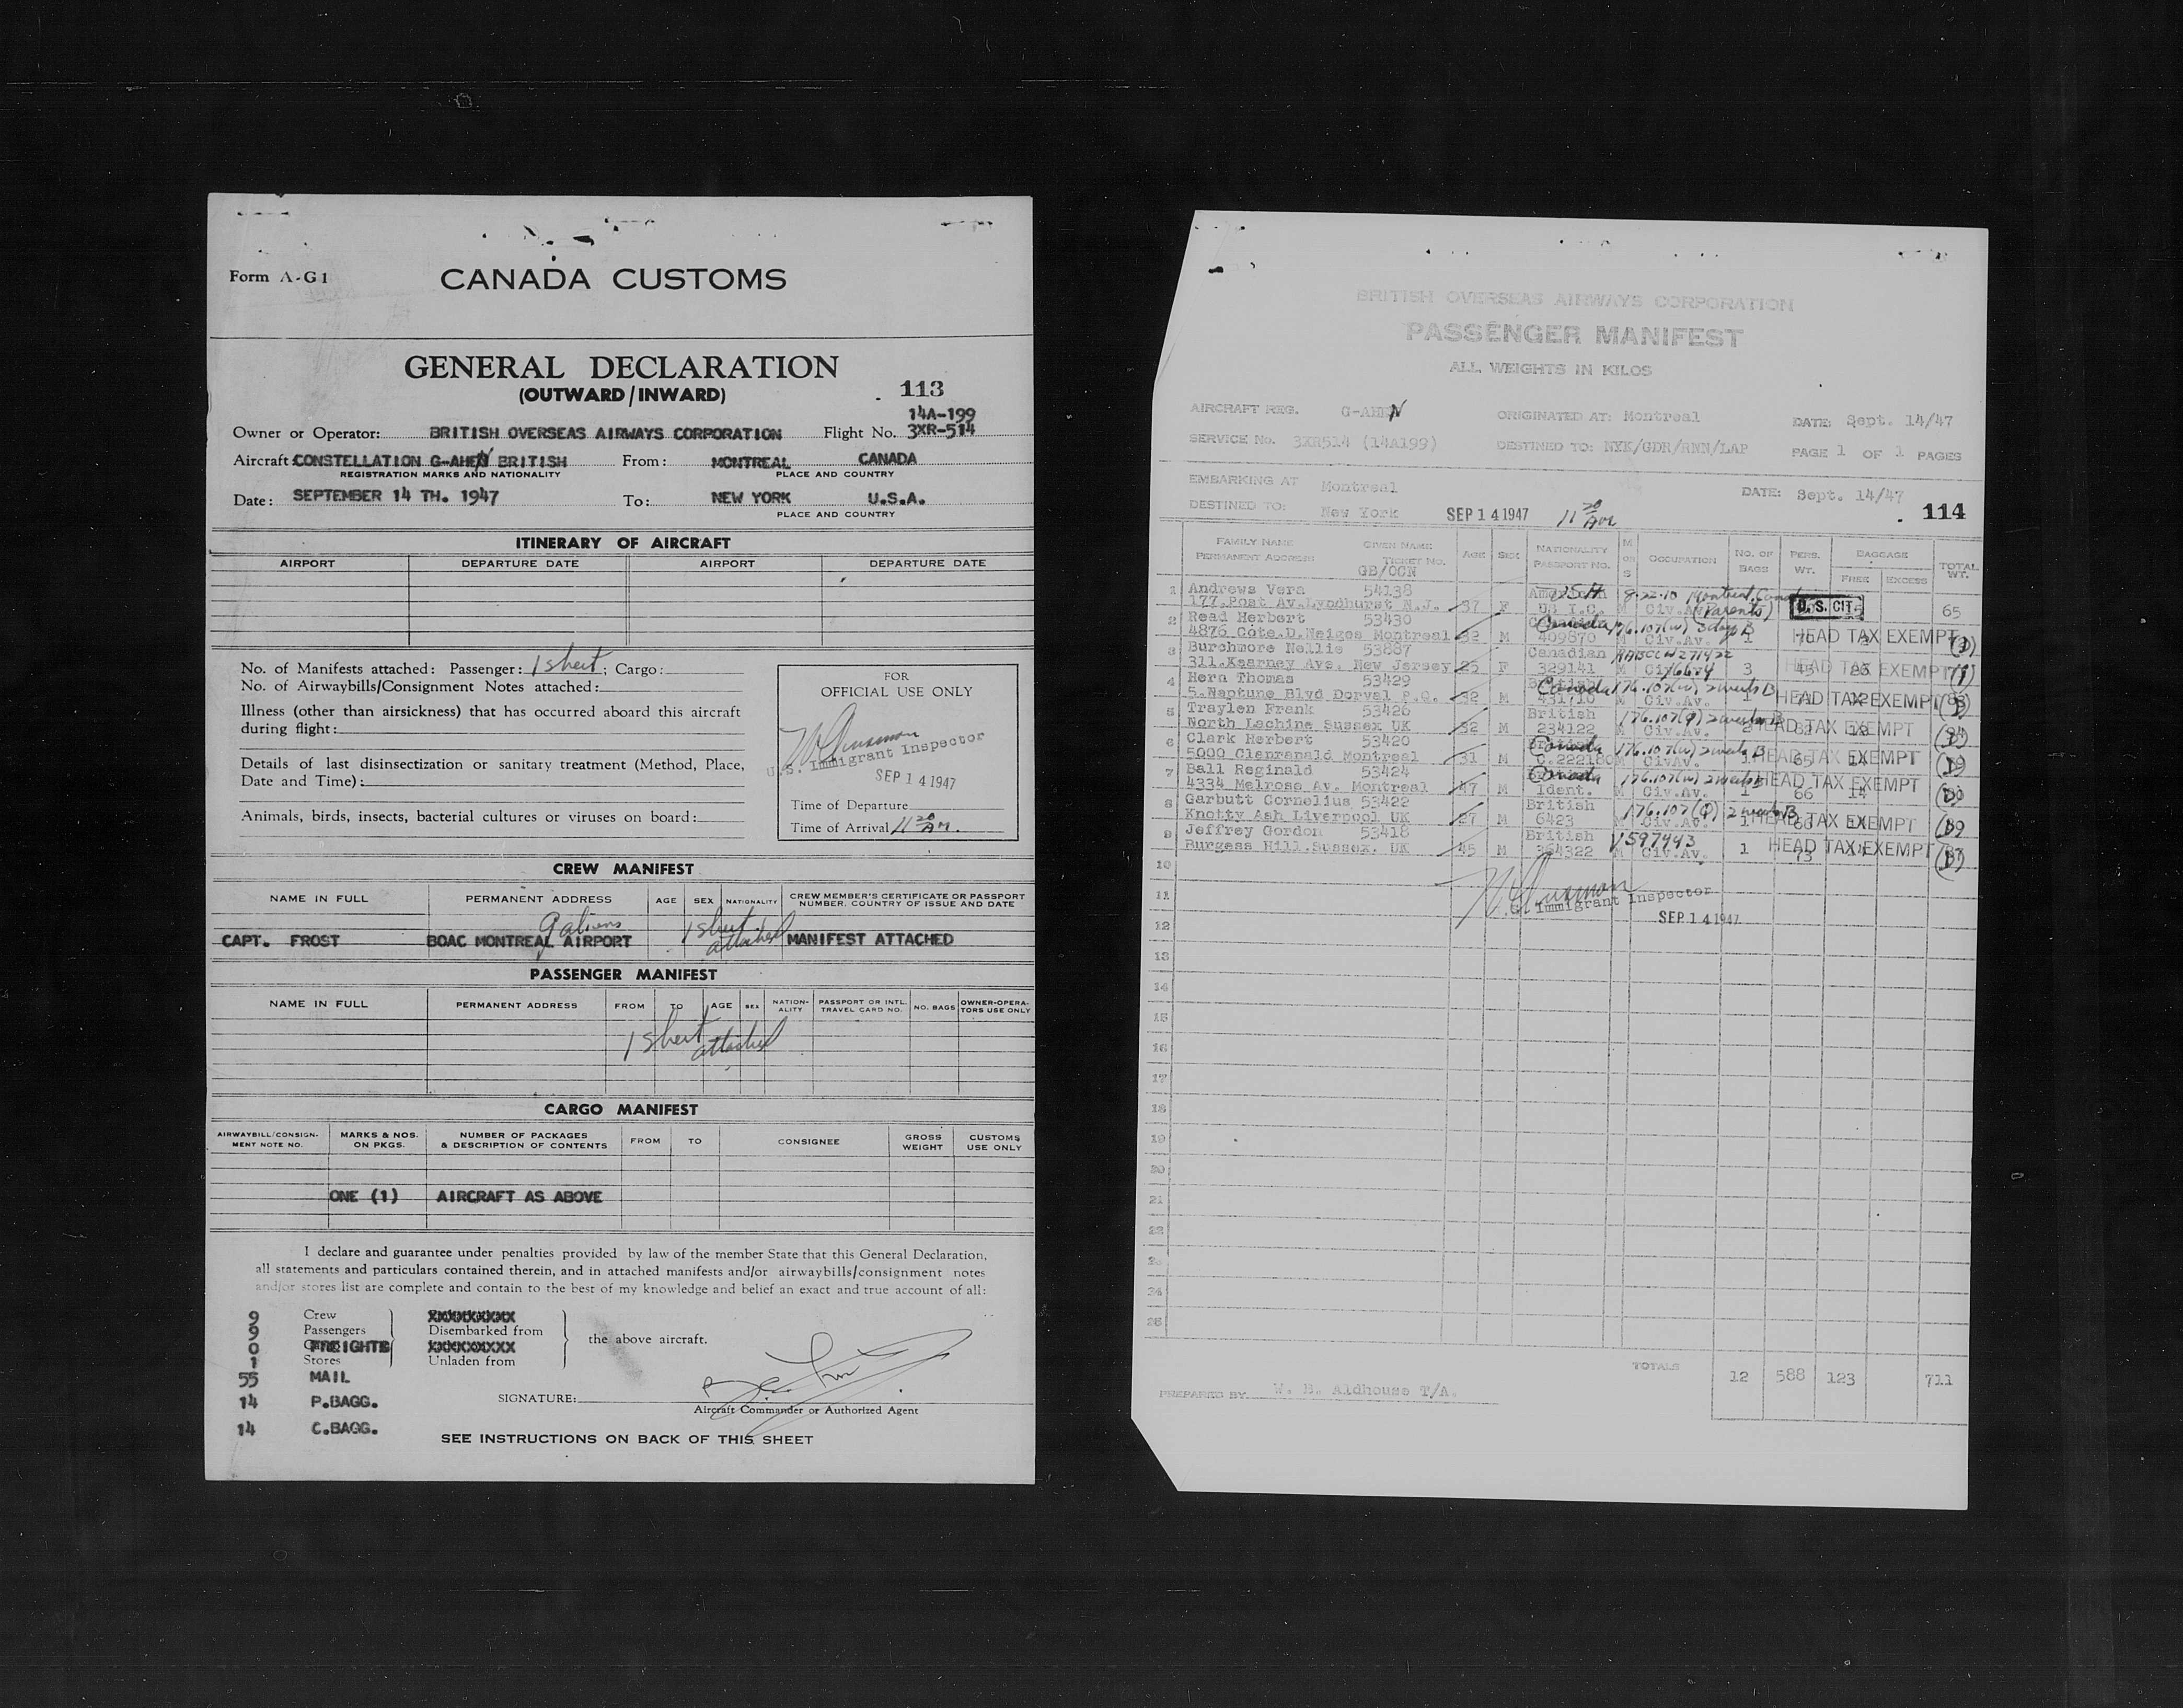 Form A-G1
CANADA CUSTOMS
GENERAL DECLARATION
(OUTWARD/INWARD)
113
14A-199
Owner or Operator: BRITISH OVERSEAS AIRWAYS CORPORATION Flight No. 3XR-514
Aircraft: CONSTELLATION G-AHEN BRITISH From: MONTREAL CANADA
REGISTRATION MARKS AND NATIONALITY PLACE AND COUNTRY
Date: SEPTEMBER 14 TH. 1947 To: NEW YORK U.S.A.
PLACE AND COUNTRY
ITINERARY OF AIRCRAFT
AIRPORT DEPARTURE DATE AIRPORT DEPARTURE DATE
No. of Manifests attached: Passenger: 1 sheet; Cargo:
No. of Airwaybills/Consignment Notes attached:
Illness (other than airsickness) that has occurred aboard this aircraft
during flight:
Details of last disinsectization or sanitary treatment (Method, Place,
Date and Time):
Animals, birds, insects, bacterial cultures or viruses on board:
FOR
OFFICIAL USE ONLY
U.S. Immigrant Inspector
SEP 14 1947
Time of Departure
Time of Arrival 11 20 AM.
CREW MANIFEST
NAME IN FULL PERMANENT ADDRESS AGE SEX NATIONALITY CREW MEMBER'S CERTIFICATE OR PASSPORT
NUMBER. COUNTRY OF ISSUE AND DATE
CAPT. FROST BOAC MONTREAL AIRPORT 1 sheet attached MANIFEST ATTACHED
PASSENGER MANIFEST
NAME IN FULL PERMANENT ADDRESS FROM TO AGE SEX NATION-ALITY PASSPORT OR INTL. TRAVEL CARD NO. NO. BAGS OWNER-OPERA-TORS USE ONLY
1 sheet attached
CARGO MANIFEST
AIRWAYBILL/CONSIGN-MENT NOTE NO. MARKS & NOS. ON PKGS. NUMBER OF PACKAGES & DESCRIPTION OF CONTENTS FROM TO CONSIGNEE GROSS WEIGHT CUSTOMS USE ONLY
ONE (1) AIRCRAFT AS ABOVE
I declare and guarantee under penalties provided by law of the member State that this General Declaration,
all statements and particulars contained therein, and in attached manifests and/or airwaybills/consignment notes
and/or stores list are complete and contain to the best of my knowledge and belief an exact and true account of all:
9 Crew XXXXXXXXX
9 Passengers Disembarked from
0 FREIGHTS XXXXXXXXX the above aircraft.
1 Stores Unladen from
55 MAIL
14 P.BAGG.
14 C.BAGG.
SIGNATURE:
Aircraft Commander or Authorized Agent
SEE INSTRUCTIONS ON BACK OF THIS SHEET
BRITISH OVERSEAS AIRWAYS CORPORATION
PASSENGER MANIFEST
ALL WEIGHTS IN KILOS
AIRCRAFT REG. G-AHEN ORIGINATED AT: Montreal DATE: Sept. 14/47
SERVICE No. 3XR514 (14A199) DESTINED TO: NYK/GDR/RNN/LAP PAGE 1 OF 1 PAGES
EMBARKING AT Montreal DATE: Sept. 14/47
DESTINED TO: New York SEP 14 1947 11 20 AM 114
FAMILY NAME GIVEN NAME AGE SEX NATIONALITY M OR S OCCUPATION NO. OF BAGS PERS. WT. BAGGAGE TOTAL WT.
PERMANENT ADDRESS TICKET NO. PASSPORT NO. FREE EXCESS
GB/OCN
1 Andrews Vera 54138 USA 8-22-10 Montreal, Canada
177.Post Av.Lyndhurst N.J. 37 F US I.C. M Civ.Av. (Parents) U.S. CIT. 65
2 Read Herbert 53430 Canada 176.107(w) 3 days B
4876 Cote.D.Neiges Montreal 52 M 409870 M Civ.Av. 1 HEAD TAX EXEMPT
3 Burchmore Nellie 53887 Canadian
311.Kearney Ave. New Jersey 25 F 329141 M 3 45 26 HEAD TAX EXEMPT
4 Hern Thomas 53429 Canada 176.107(w) 2 weeks B
5.Neptune Blvd Dorval P.Q. 32 M 431710 M Civ.Av. 1 HEAD TAX EXEMPT
5 Traylen Frank 53426 British 176.107(P) 2 weeks B
North Lachine Sussex UK 32 M 234122 M Civ.Av. HEAD TAX EXEMPT
6 Clark Herbert 53420 Canada 176.107(w) 2 weeks B
5000 Clenranald Montreal 31 M C.222180 M CivAv. 1 65 HEAD TAX EXEMPT
7 Ball Reginald 53424 Canada 176.107(w) 2 weeks B
4334 Melrose Av. Montreal 47 M Ident. M Civ.Av. 1 66 14 HEAD TAX EXEMPT
8 Garbutt Cornelius 53422 British 176.107(P) 2 weeks B
Knotty Ash Liverpool UK 27 M 6423 M Civ.Av. 1 HEAD TAX EXEMPT
9 Jeffrey Gordon 53418 British V597443
Burgess Hill.Sussex. UK 45 M 364322 M Civ.Av. 1 73 HEAD TAX EXEMPT
10
11
U.S. Immigrant Inspector
12
SEP 14 1947
13
14
15
16
17
18
19
20
21
22
23
24
25
TOTALS 12 588 123 711
PREPARED BY W. B. Aldhouse T/A.